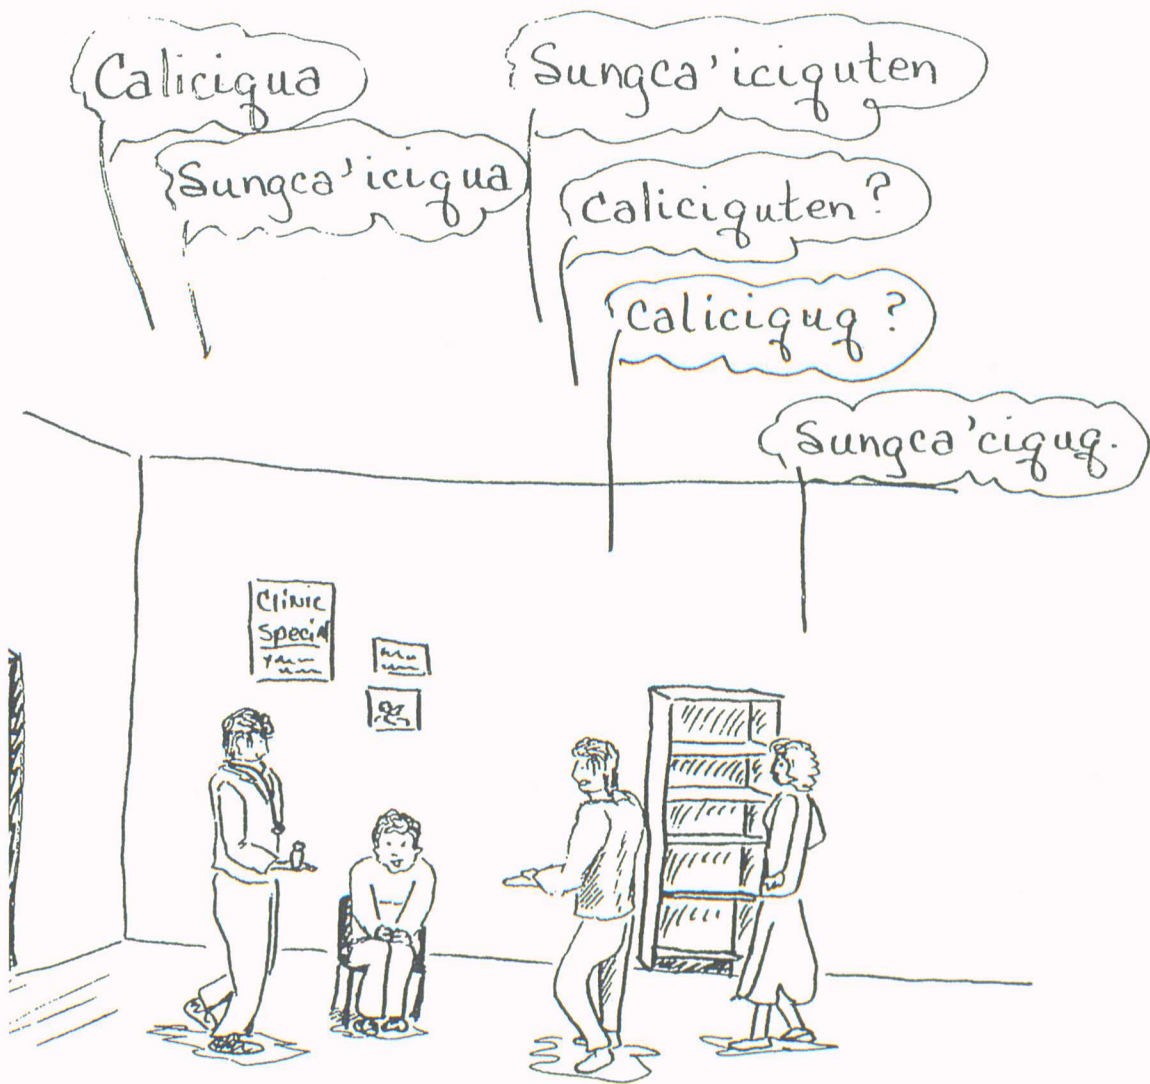 Caliciqua
Sungca'iciqua
Sungca'iciquten
Caliciquten?
Caliciquq?
Sungca'ciquq.
Clinic
Special